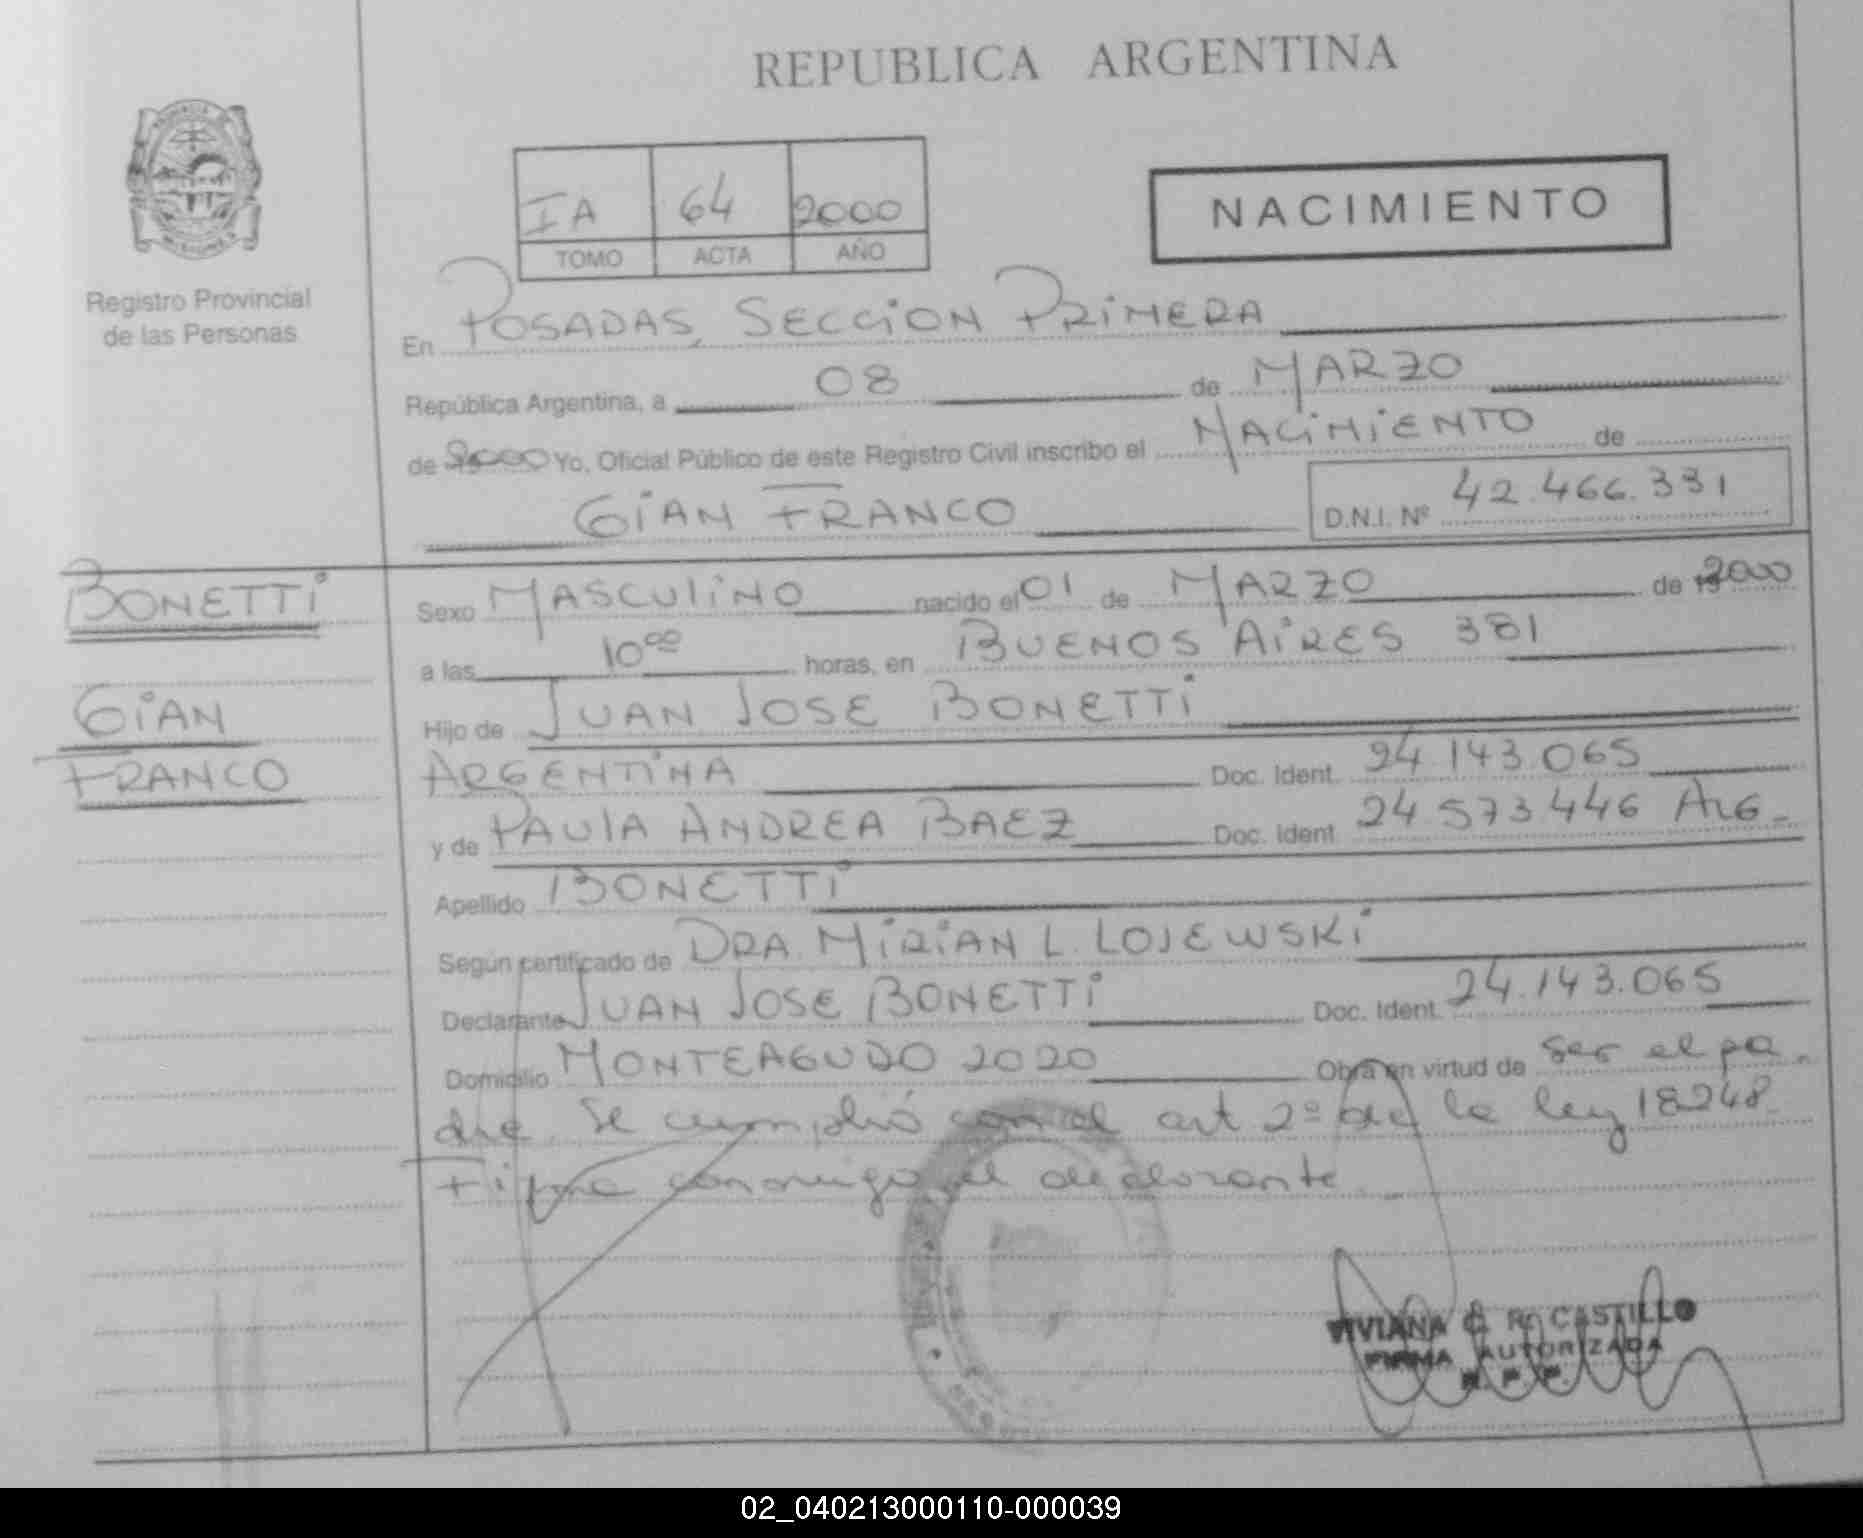 REPUBLICA ARGENTINA
IA 64 2000
TOMO ACTA AÑO
NACIMIENTO
Registro Provincial
de las Personas
En POSADAS, SECCiON PRiMERA
República Argentina, a 08 de MARZO
de 2000 Yo, Oficial Público de este Registro Civil inscribo el NACiMiENTO de
GiAN FRANCO D.N.I. Nº 42.466.331
BONETTi
GiAN
FRANCO
Sexo MASCULiNO nacido el 01 de MARZO de 2000
a las 10⁰⁰ horas, en BUENOS AiRES 381
Hijo de JUAN JOSE BONETTi
ARGENTiNA Doc. Ident. 24.143.065
y de PAULA ANDREA BAEZ Doc. Ident. 24.573.446 ARG.
Apellido BONETTi
Según certificado de DRA. MiRiAN L. LOJEWSKi
Declarante JUAN JOSE BONETTi Doc. Ident. 24.143.065
Domicilio MONTEAGUDO 2020 Obra en virtud de ser el pa-
dre. Se cumplió con el art 2º de la ley 18248.
Firma conmigo el declarante
VIVIANA C. R. CASTILLO
FIRMA AUTORIZADA
02_040213000110-000039